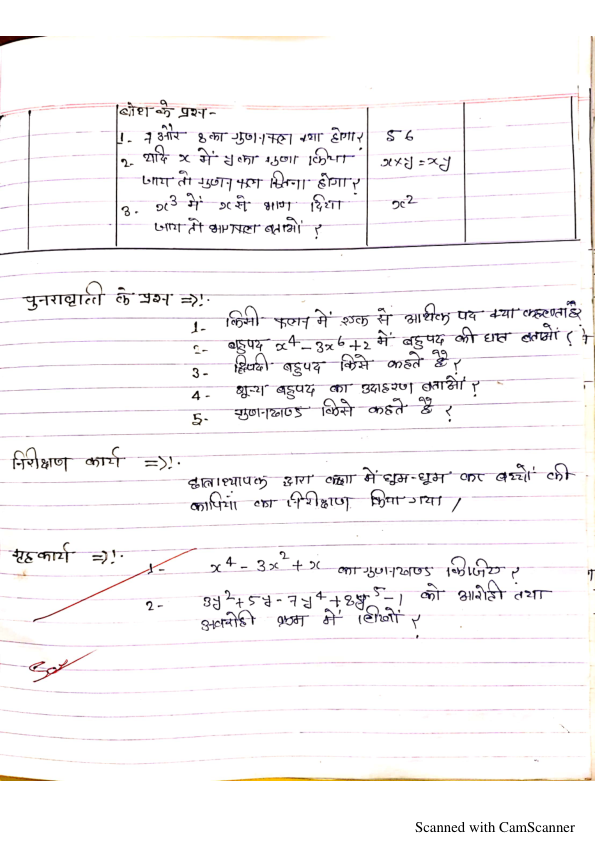 बोध के प्रश्न-
1. 7 और 8 का गुणनफल क्या होगा? 56
2. यदि x में y का गुणा किया x×y=xy
जाय तो गुणनफल कितना होगा?
3. x³ में x से भाग दिया x²
जाय तो भागफल बताओं ?
पुनरावृत्ति के प्रश्न ⇒!·
1- किसी कथन में एक से अधिक पद क्या कहलाता है?
2- बहुपद x⁴-3x⁶+2 में बहुपद की घात बताओं ?
3- द्विपदी बहुपद किसे कहते है ?
4- शून्य बहुपद का उदाहरण बताओं ?
5- गुणनखण्ड किसे कहते है ?
निरीक्षण कार्य ⇒!·
छात्राध्यापक द्वारा कक्षा में घूम-घूम कर बच्चों की
कापियों का निरीक्षण किया गया /
गृहकार्य ⇒!·
1- x⁴-3x²+x का गुणनखण्ड किजिए ?
2- 3y²+5y-7y⁴+8y⁵-1 को आरोही तथा
अवरोही क्रम में लिखों ?
Scanned with CamScanner